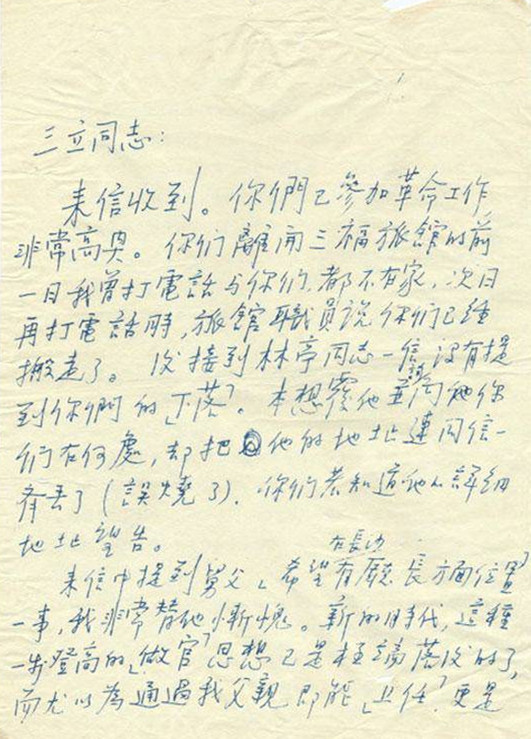 三立同志：
来信收到。你們已參加革命工作
非常高兴。你们離開三福旅館的前
一日我曾打電話与你们，都不在家，次日
再打電話時，旅館職員説你们已經
搬走了。後接到林亭同志一信，没有提
到你們的「下落」。本想覆他並询他你
们在何處，却把他的地址連同信一
齊丢了（誤燒了）。你们若知道他的詳細
地址望告。
來信中提到舅父「希望在長沙有廳長方面位置」
一事，我非常替他慚愧。新的時代，這種
一步登高的「做官」思想已是極端落後的了，
而尤以為通過我父親即能「上任」，更是